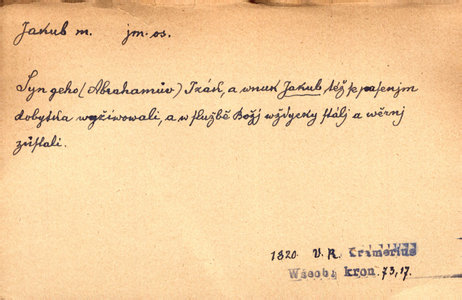 Jakub m. jm. os.
Syn geho (Abrahamův) Izák, a wnuk Jakub též se pasenjm
dobytka wyžiwowali, a w službě Božj wždycky stálj a wěrnj
zůstali.
1820 V. R. Kramerius
Wšeob. kron. 73, 17.